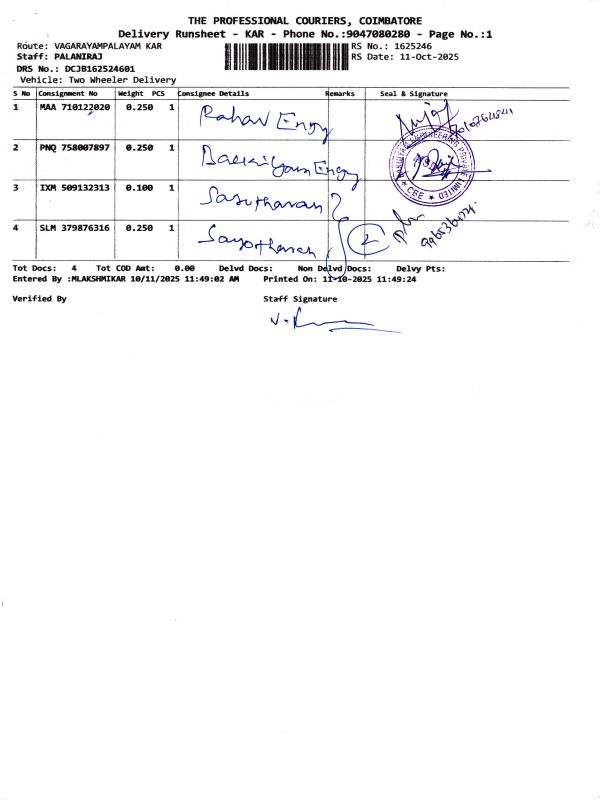 THE PROFESSIONAL COURIERS, COIMBATORE
Delivery Runsheet - KAR - Phone No.:9047080280 - Page No.:1
Route: VAGARAYAMPALAYAM KAR RS No.: 1625246
Staff: PALANIRAJ RS Date: 11-Oct-2025
DRS No.: DCJB162524601
Vehicle: Two Wheeler Delivery
S No Consignment No Weight PCS Consignee Details Remarks Seal & Signature
1 MAA 710122020 0.250 1 Rahav Engg
2 PNQ 758007897 0.250 1 Engg
3 IXM 509132313 0.100 1 Sasitharan
4 SLM 379876316 0.250 1 2
CBE
PRIVATE LIMITED
Tot Docs: 4 Tot COD Amt: 0.00 Delvd Docs: Non Delvd Docs: Delvy Pts:
Entered By :MLAKSHMIKAR 10/11/2025 11:49:02 AM Printed On: 11-10-2025 11:49:24
Verified By Staff Signature